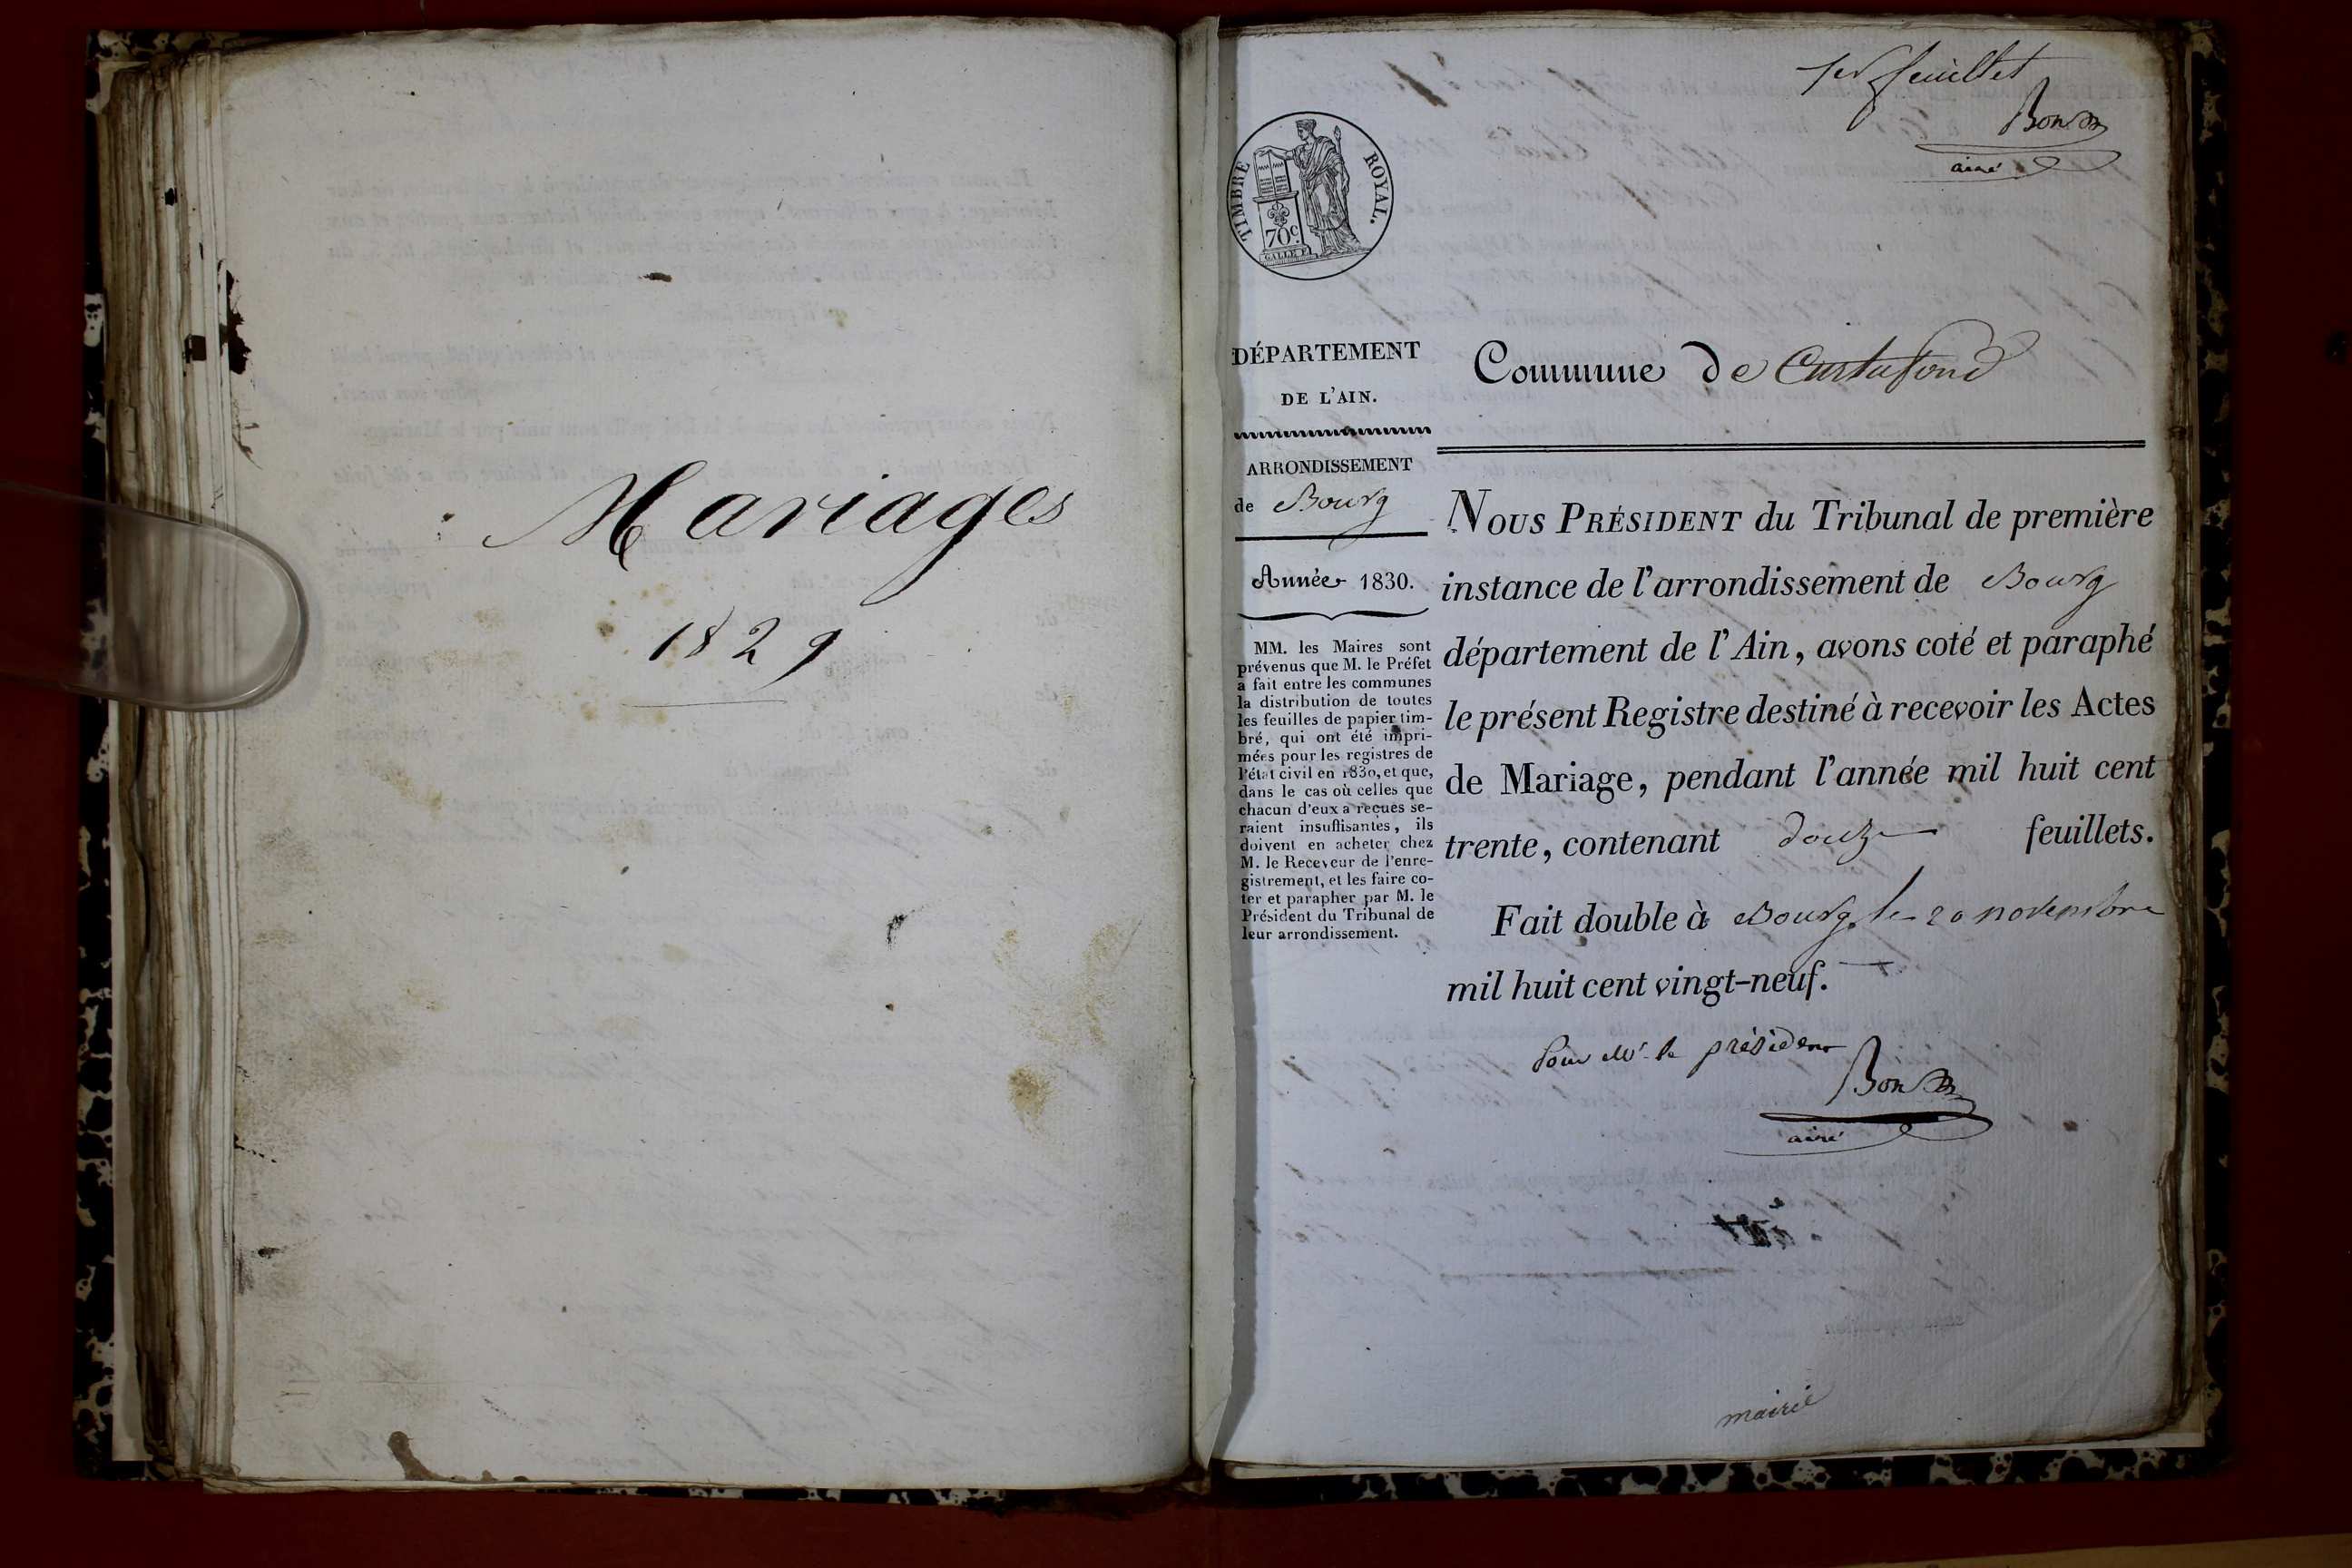 Mariages
1829
1er feuillet
Bon
ainé
TIMBRE ROYAL.
70c.
GALLE F.
DÉPARTEMENT
DE L'AIN.
ARRONDISSEMENT
de Bourg
Année 1830.
MM. les Maires sont
prévenus que M. le Préfet
a fait entre les communes
la distribution de toutes
les feuilles de papier tim-
bré, qui ont été impri-
mées pour les registres de
l'état civil en 1830, et que,
dans le cas où celles que
chacun d'eux a reçues se-
raient insuffisantes, ils
doivent en acheter chez
M. le Receveur de l'enre-
gistrement, et les faire co-
ter et parapher par M. le
Président du Tribunal de
leur arrondissement.
Commune de Curtafond
NOUS PRÉSIDENT du Tribunal de première
instance de l'arrondissement de Bourg
département de l'Ain, avons coté et paraphé
le présent Registre destiné à recevoir les Actes
de Mariage, pendant l'année mil huit cent
trente, contenant douze feuillets.
Fait double à Bourg, le 20 novembre
mil huit cent vingt-neuf.
Pour Mr le président
Bon
ainé
mairie